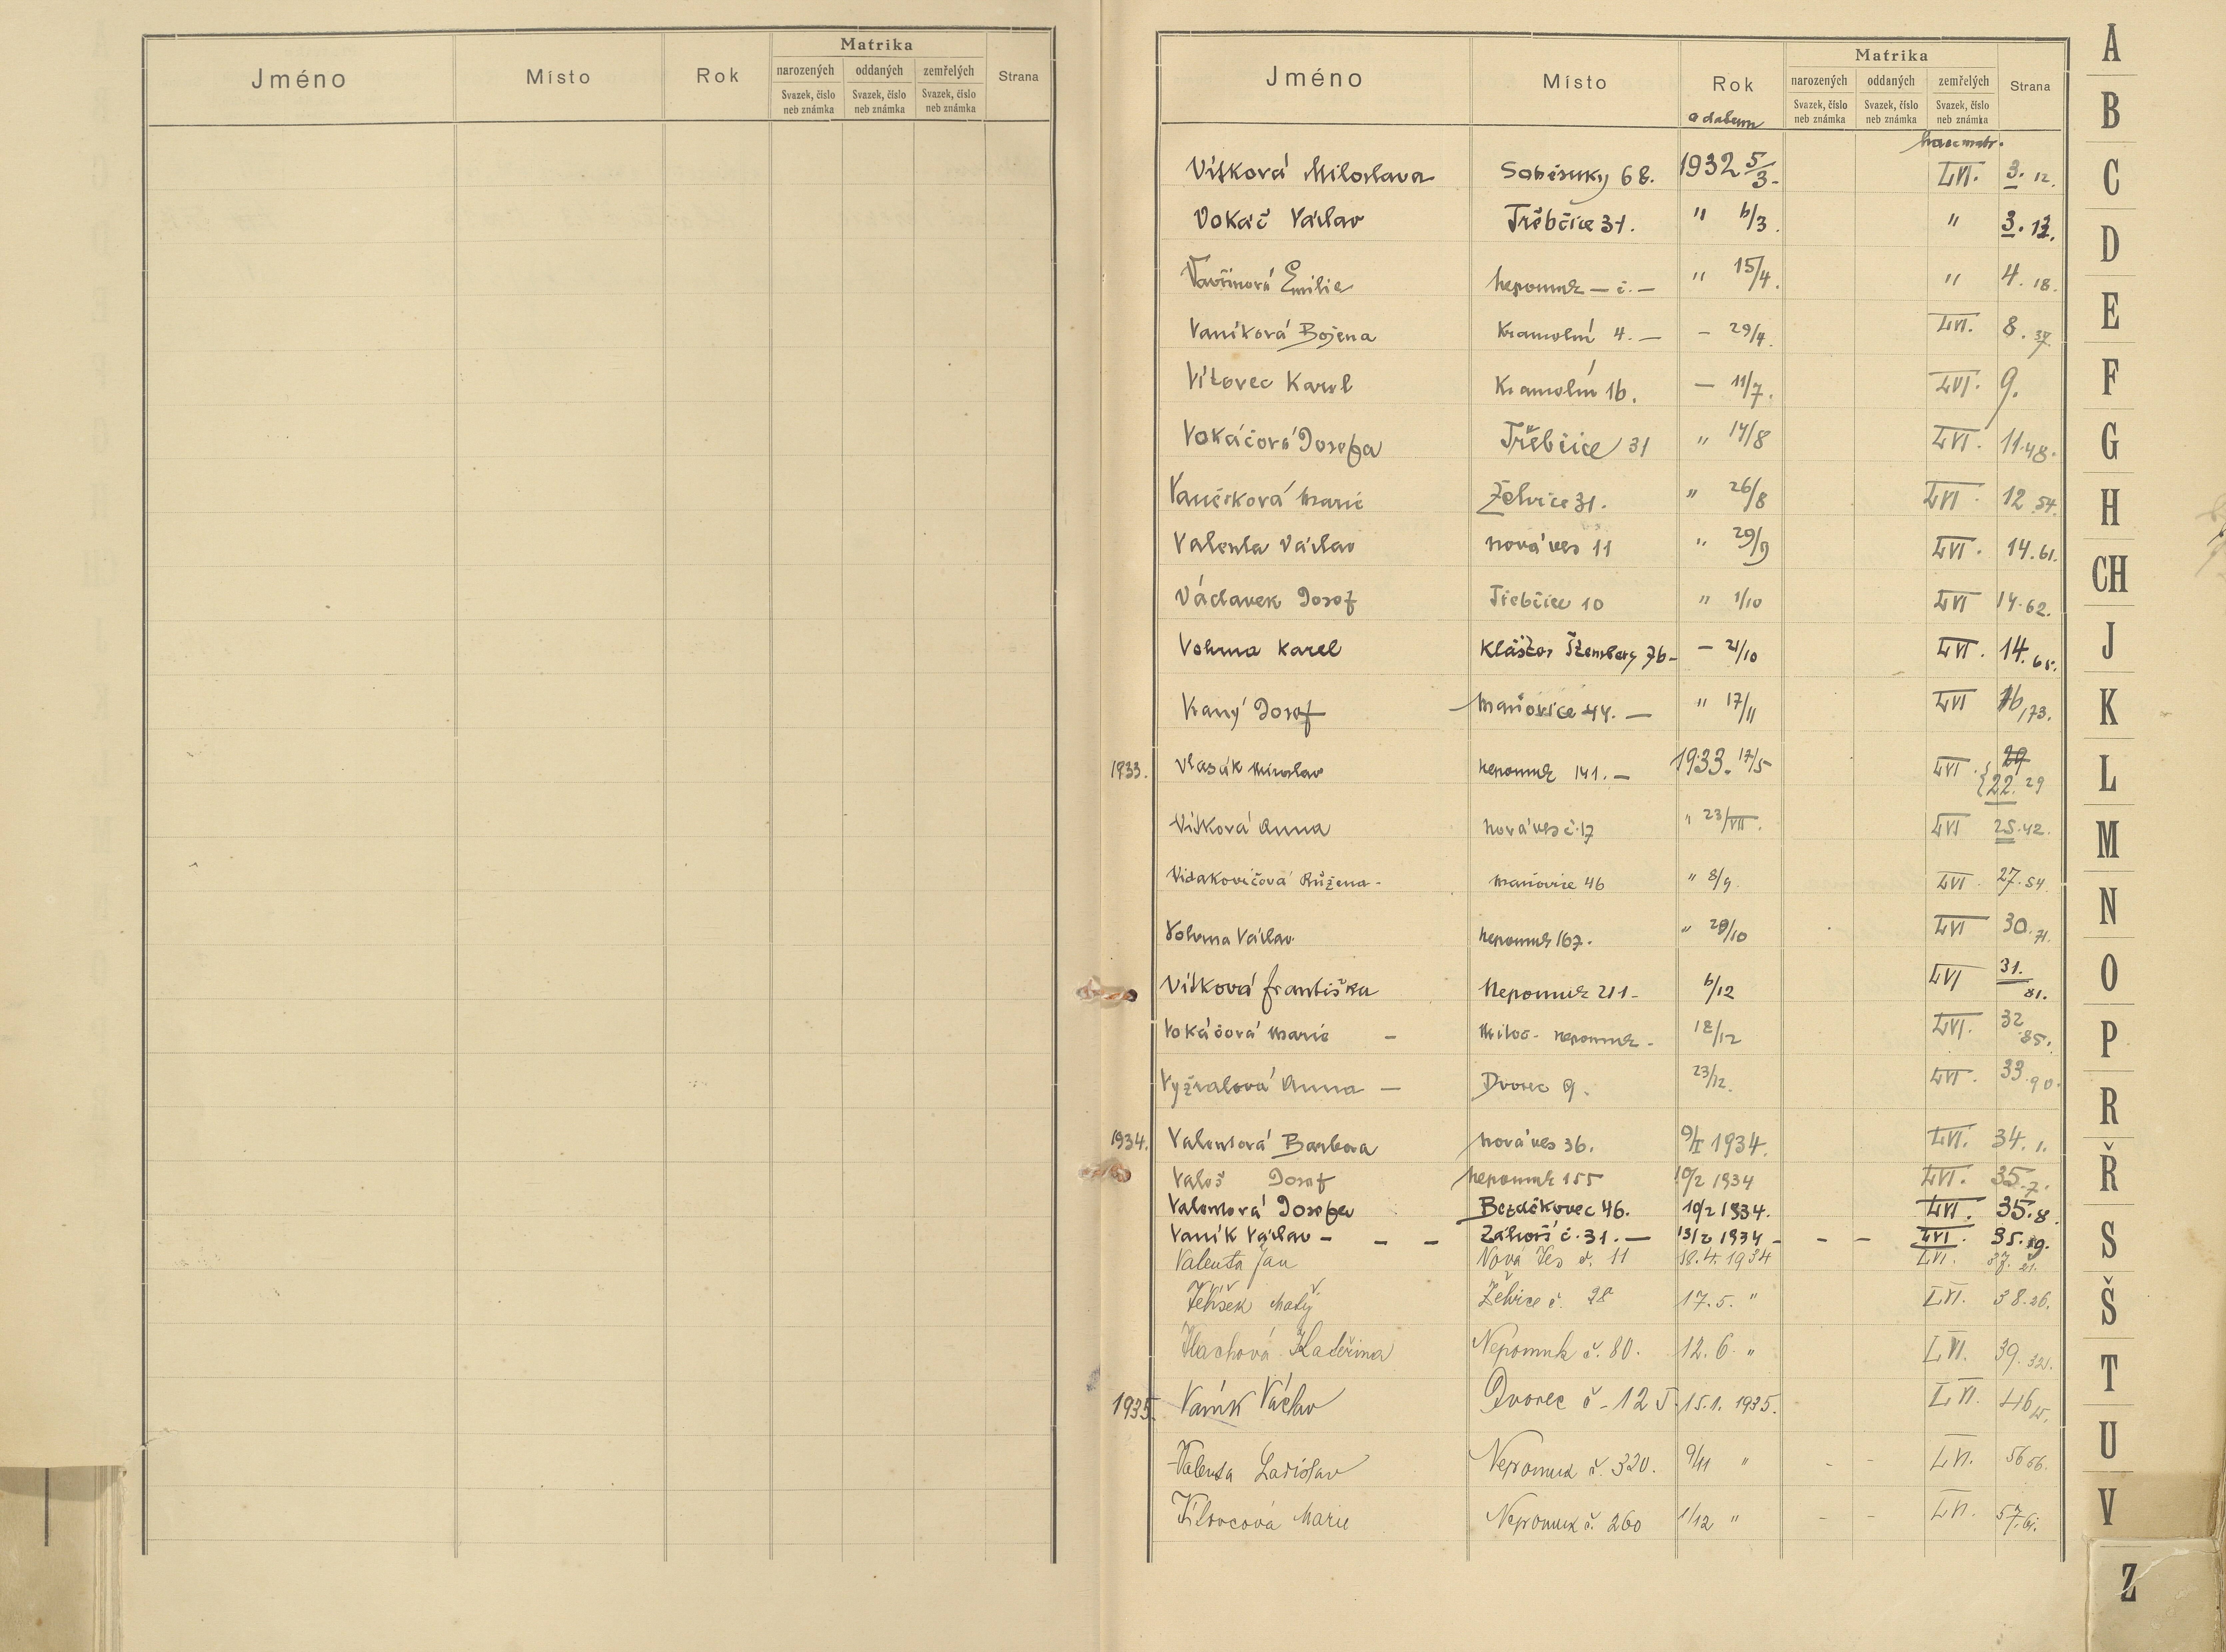 Matrika
Jméno Místo Rok narozených oddaných zemřelých Strana
Svazek, číslo neb známka Svazek, číslo neb známka Svazek, číslo neb známka
Matrika
Jméno Místo Rok narozených oddaných zemřelých Strana
a datum Svazek, číslo neb známka Svazek, číslo neb známka Svazek, číslo neb známka
Vítková Miloslava Soběsuky 68. 1932 5/3. LVI. 3. 12.
Vokáč Václav Třebčice 31. " 6/3. " 3. 13.
Vavřinová Emilie Nepomuk — č. — " 15/4. " 4. 18.
Vaníková Božena Kramolín 4. — – 29/4. LVI. 8. 37.
Vítovec Karel Kramolín 16. — 11/7. LVI. 9.
Vokáčová Josefa Třebčice 31 " 14/8 LVI. 11. 48.
Vaněčková Marie Želvice 31. " 26/8 LVI. 12. 54.
Valenta Václav Nová ves 11 " 29/9 LVI. 14. 61.
Václavek Josef Třebčice 10 " 1/10 LVI 14. 62.
Vohma Karel Klášter Štemberg 76 – – 21/10 LVI. 14. 65.
Vraný Josef Maňovice 44. — " 17/11 LVI 16/73.
1933. Vlasák Miroslav Nepomuk 141. — 1933. 17/5 LVI. 22. 29
Vítková Anna Nová ves č. 17 " 23/VII. LVI 25. 42.
Vidakovičová Růžena - Maňovice 46 " 8/9. LVI. 27. 54.
Vohma Václav. Nepomuk 167. " 29/10 LVI 30. 71.
Vítková Františka Nepomuk 211 - 6/12 LVI 31. 81.
Vokáčová Marie – Miloč - Nepomuk - 12/12 LVI. 32. 85.
Vyžralová Anna — Dvorec 9. 23/12. LVI. 33. 90.
1934. Valentová Barbora Nová ves 36. 9/I 1934. LVI. 34. 1.
Valeš Josef Nepomuk 155 10/2 1934 LVI. 35. 7.
Valentová Josefa Bezděkovec 46. 10/2 1934. LVI. 35. 8.
Vaník Václav – – – Záhoří č. 31. — 13/2 1934 – – – LVI. 35. 9.
Valenta Jan Nová Ves č. 11 18. 4. 1934 LVI. 37. 21.
Matěj Želvice č. 28 17. 5. " LVI. 38. 26.
Vlachová Kateřina Nepomuk č. 80. 12. 6. " LVI. 39. 32.
1935. Vaník Václav Dvorec č. 125. 15. 1. 1935. LVI. 46
Valenta Ladislav Nepomuk č. 320. 9/11 " - - LVI. 56 56.
Vítovcová Marie Nepomuk č. 260 1/12 " - - LVI. 57. 61.
A
B
C
D
E
F
G
H
CH
J
K
L
M
N
O
P
R
Ř
S
Š
T
U
V
Z